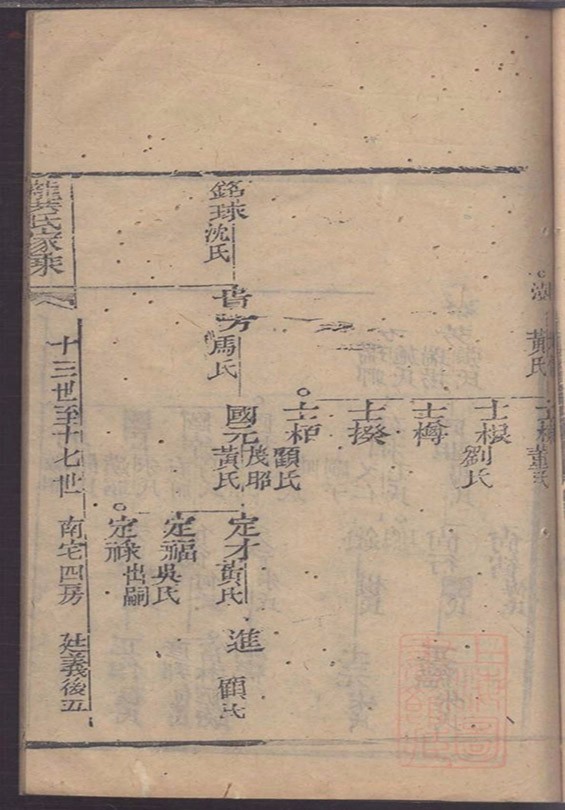 黃氏
董氏
士樽
士揆
士栢
劉氏
顧氏
銘球
沈氏
馬氏
國元
茂昭
黃氏
定才
黃氏
進
顧氏
定福
吳氏
定祿
出嗣
氏家乘
十三世至十七世 南宅四房 廷義後五